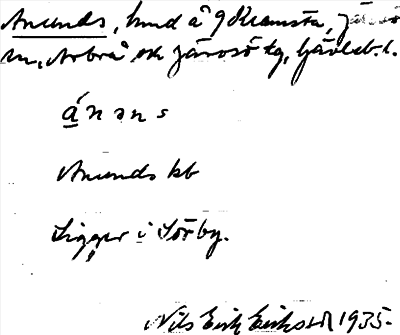 Anunds, hmd å 9 Kramsta, Järvsö
sn, Arbrå och Järvsö tg, Gävleb. l.
ánəns
Anunds kb
Ligger i Sörby.
Nils Erik Eriksson 1935.